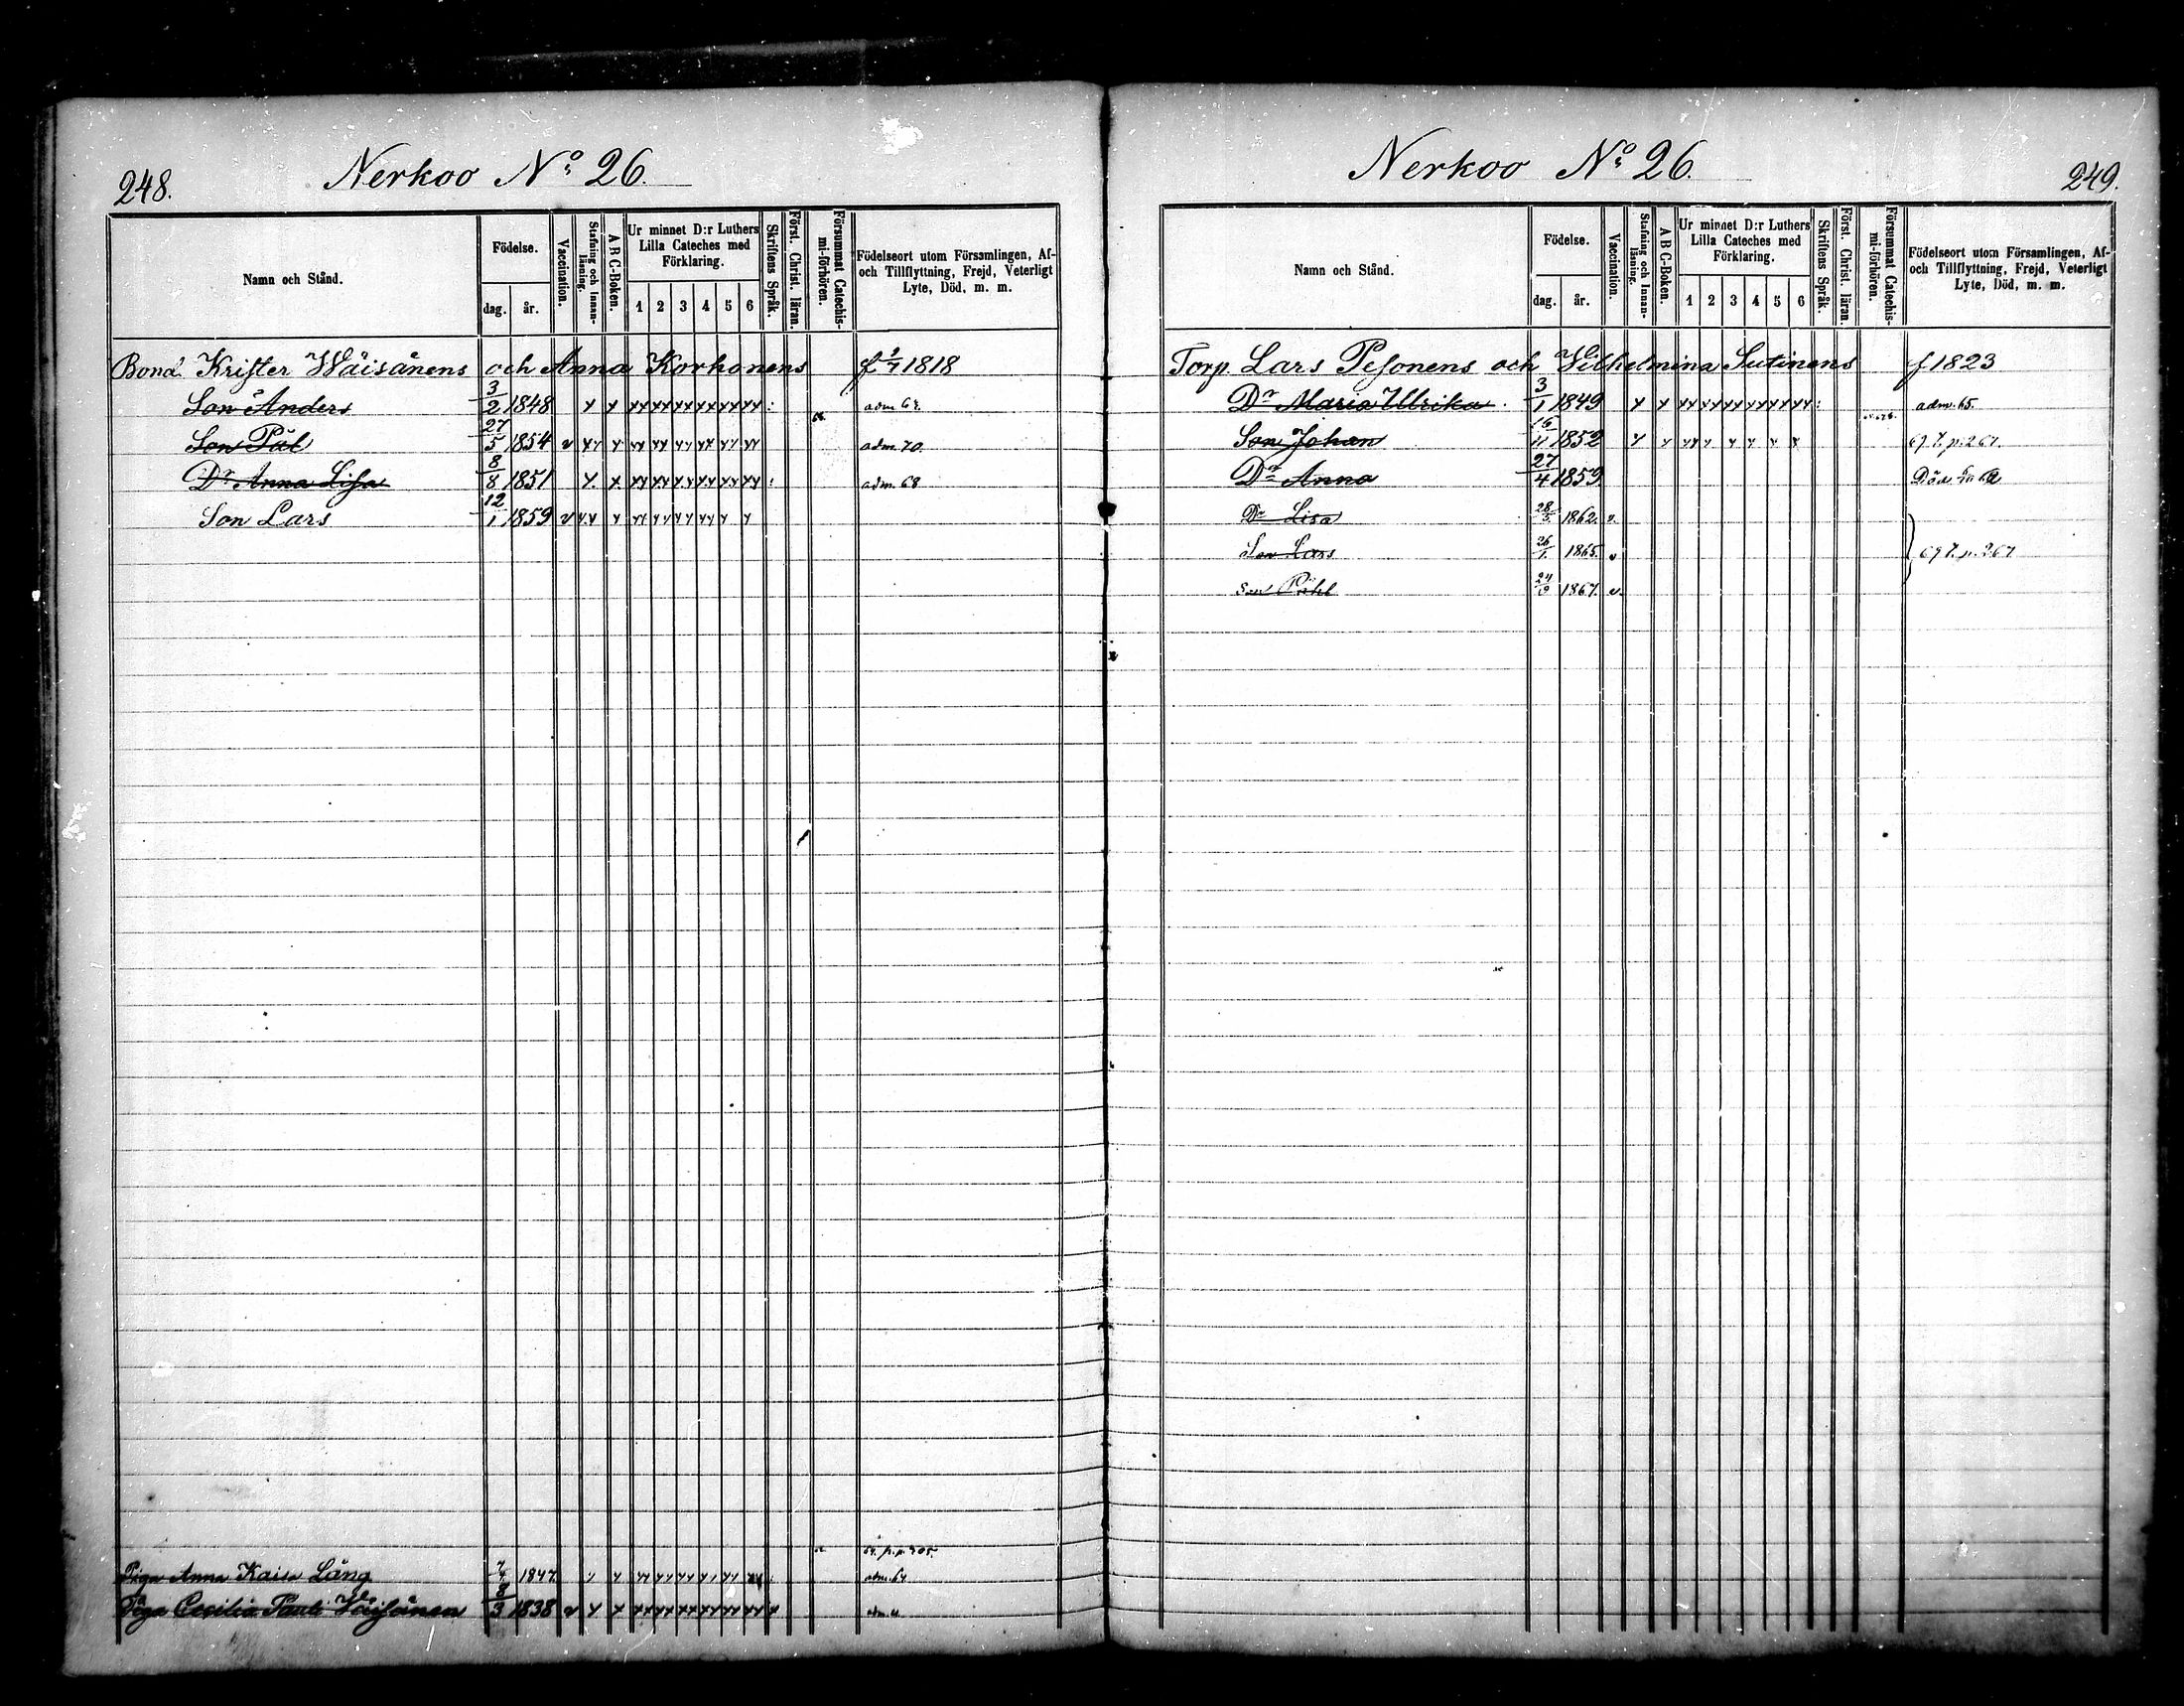 248.
Nerkoo No 26.
Namn och Stånd.
Födelse.
dag.
år.
Vaccination.
Stafning och Innan-
läsning.
A B C-Boken.
Ur minnet D:r Luthers
Lilla Cateches med
Förklaring.
1 2 3 4 5 6
Skriftens Språk.
Först. Christ. läran.
Försummat Catechis-
mi-förhören.
Födelseort utom Församlingen, Af-
och Tillflyttning, Frejd, Veterligt
Lyte, Död, m. m.
Bond. Krister Wäisänens och Anna Korhonens 1818
Son Anders 3/2 1848
Son Pål 27/5 1854 v adm. 70.
Dr Anna Lisa 8/8 1851 adm. 68
Son Lars 12/1 1859 v
Piga Anna Kaisa Lång 1847 adm. 64
Piga Cecilia Wäisänen 8/3 1838 v
Nerkoo No 26.
249.
Namn och Stånd.
Födelse.
dag.
år.
Vaccination.
Stafning och Innan-
läsning.
A B C-Boken.
Ur minnet D:r Luthers
Lilla Cateches med
Förklaring.
1 2 3 4 5 6
Skriftens Språk.
Först. Christ. läran.
Försummat Catechis-
mi-förhören.
Födelseort utom Församlingen, Af-
och Tillflyttning, Frejd, Veterligt
Lyte, Död, m. m.
Torp. Lars Pesonens och Wilhelmina Sutinens f 1823
Dr Maria Ullrika 3/1 1849 adm. 65.
Son Johan 16/11 1852 p. 267.
Dr Anna 27/4 1859 Död
Dr Lisa 28/5 1862. v.
Son Lars 26/1 1865. v
Son Påhl 1867. v.